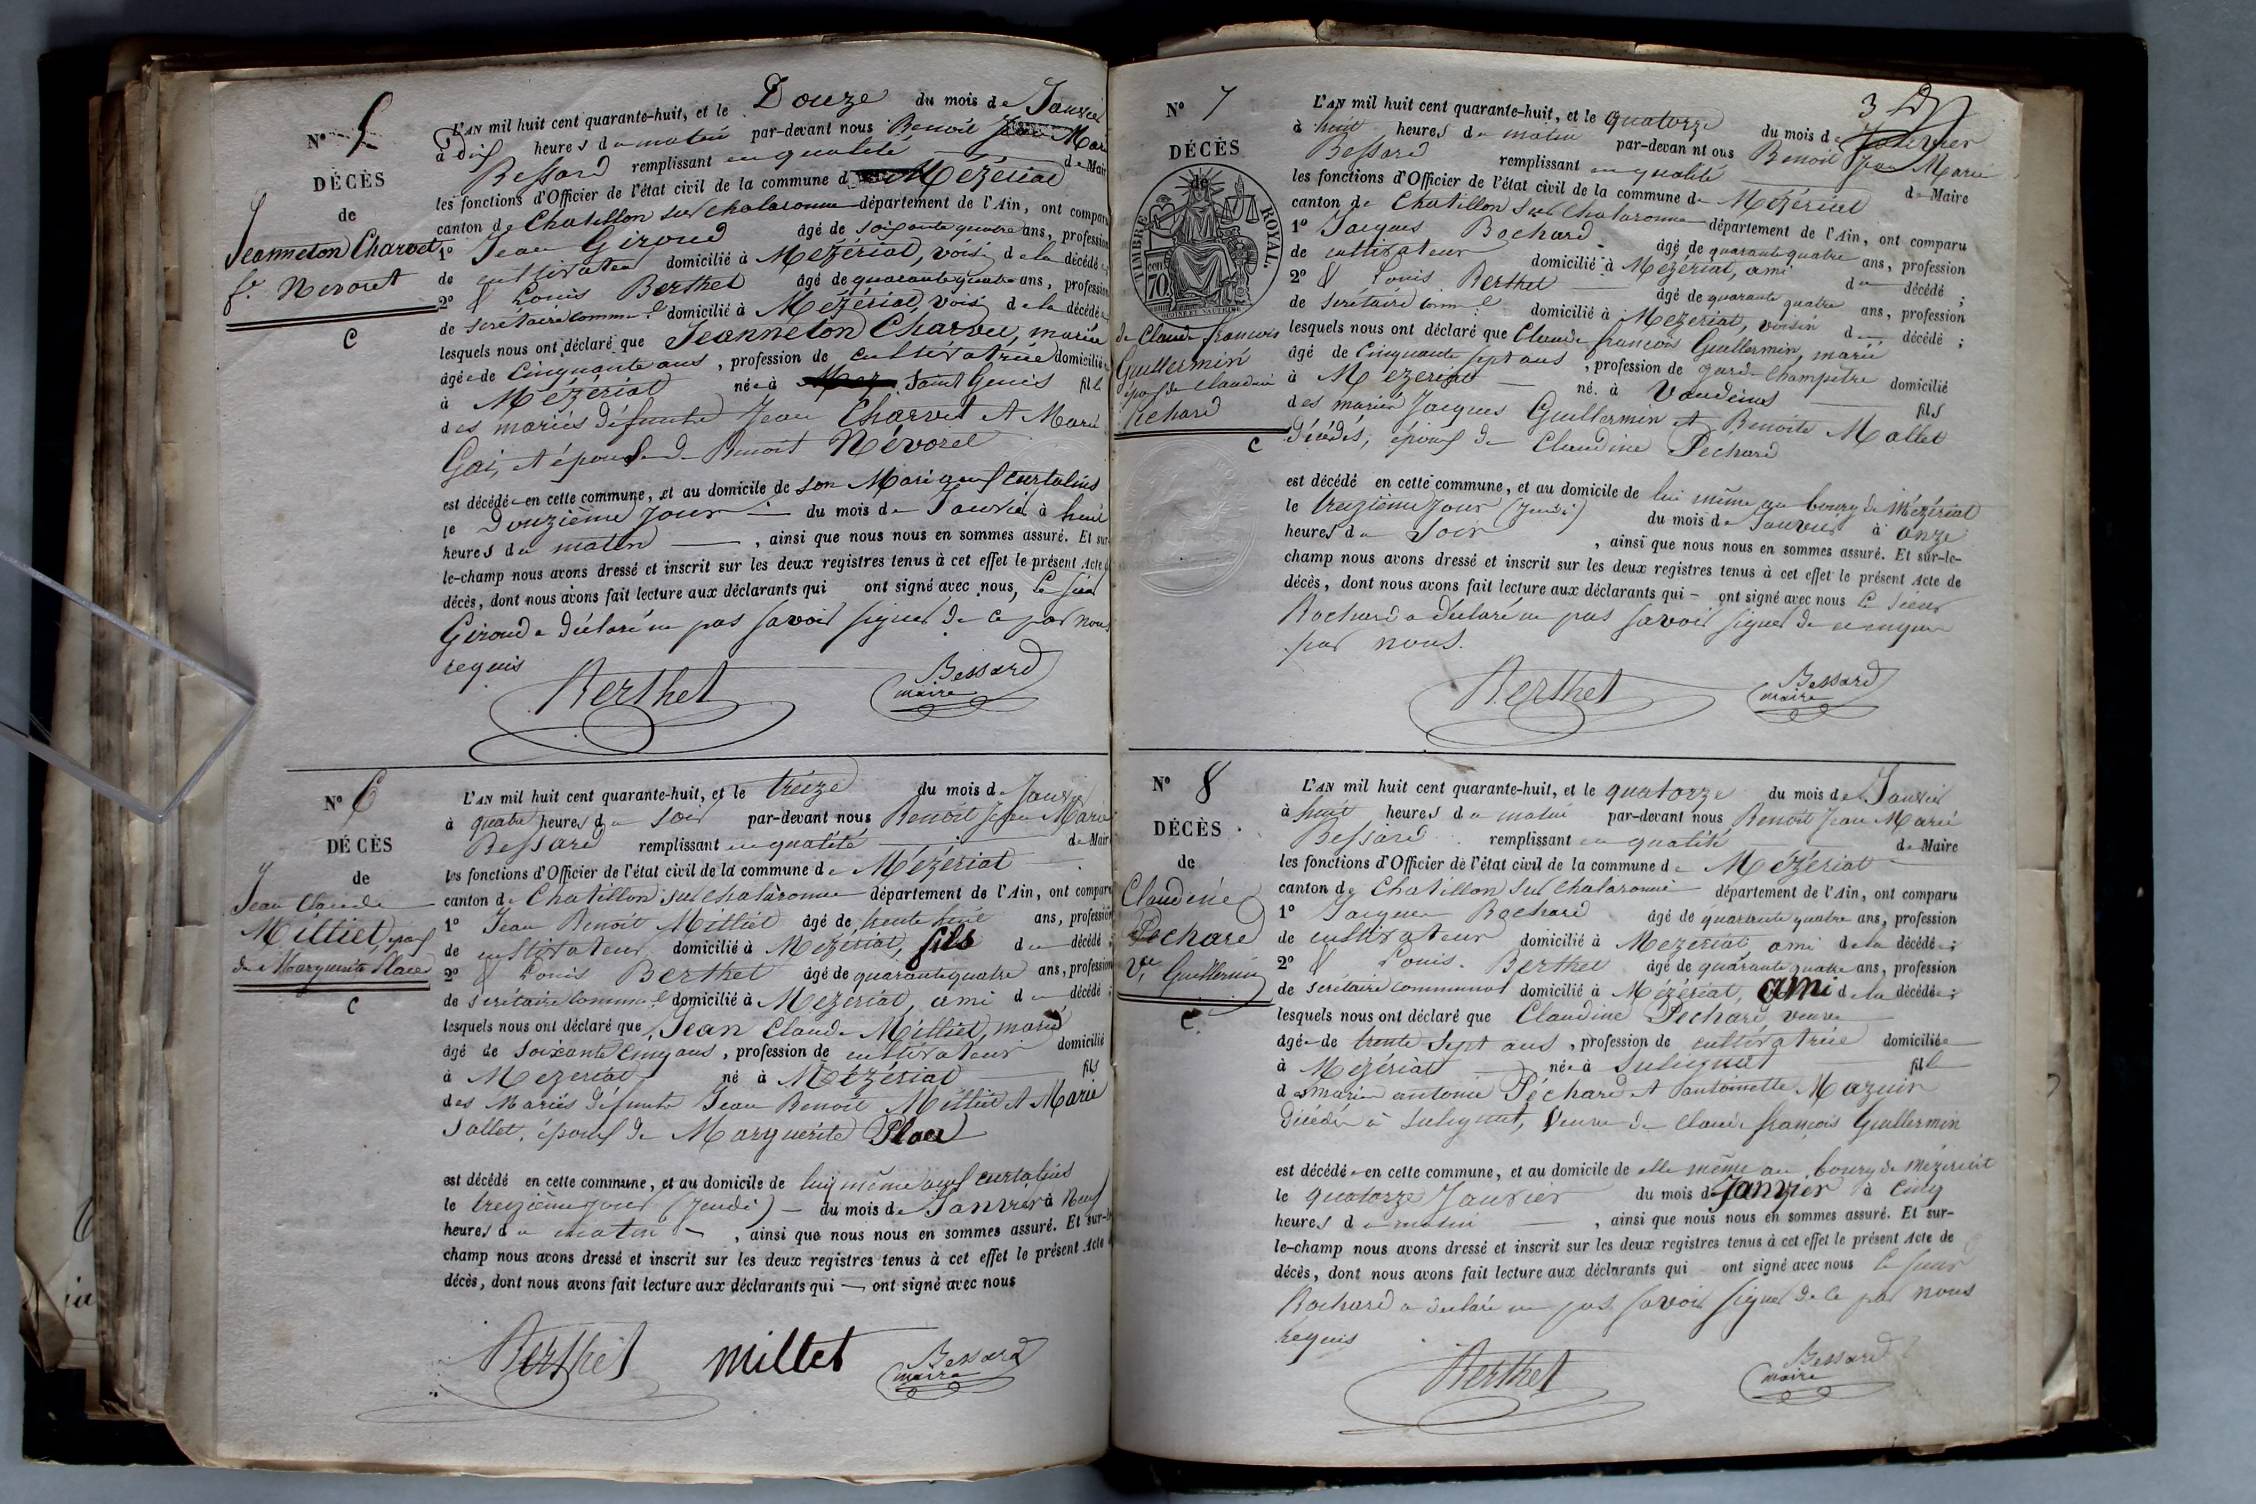 N° 5
DÉCÈS
de
Jeanneton Charvet
fe Nevoret
C
L'AN mil huit cent quarante-huit, et le Douze du mois de Janvier
à dix heures du matin par-devant nous Benoit Jean Marie
Bessard remplissant en qualité de Maire
les fonctions d'Officier de l'état civil de la commune de Mézériat
canton de Chatillon sur Chalaronne département de l'Ain, ont comparu
1° Jean Giroud âgé de soixante quatre ans, profession
de cultivateur domicilié à Mézériat, voisin de la décédée
2° & Louis Berthet âgé de quarante quatre ans, profession
de secrétaire comm.l domicilié à Mézériat, voisin de la décédée
lesquels nous ont déclaré que Jeanneton Charvet, mariée
âgée de Cinquante ans, profession de cultivatrice domiciliée
à Mézériat née à Saint Genis fille
des mariés défunts Jean Charvet et Marie
Gai, et épouse de Benoit Névoret
est décédée en cette commune, et au domicile de son Mari aux curtelins
le Douzième jour du mois de Janvier à huit
heures du matin, ainsi que nous nous en sommes assuré. Et sur-
le-champ nous avons dressé et inscrit sur les deux registres tenus à cet effet le présent Acte de
décès, dont nous avons fait lecture aux déclarants qui ont signé avec nous, le sieur
Giroud a déclaré ne pas savoir signer de ce par nous
requis
Berthet Bessard
maire
N° 6
DÉCÈS
de
Jean Claude
Milliet, époux
de Marguerite Place
C
L'AN mil huit cent quarante-huit, et le treize du mois de Janvier
à quatre heures du soir par-devant nous Benoit Jean Marie
Bessard remplissant en qualité de Maire
les fonctions d'Officier de l'état civil de la commune de Mézériat
canton de Chatillon sur Chalaronne département de l'Ain, ont comparu
1° Jean Benoit Milliet âgé de trente ans, profession
de cultivateur domicilié à Mézériat, fils du décédé ;
2° & Louis Berthet âgé de quarante quatre ans, profession
de secrétaire comm.l domicilié à Mézériat, ami du décédé ;
lesquels nous ont déclaré que Jean Claude Milliet, marié
âgé de soixante cinq ans, profession de cultivateur domicilié
à Mézériat né à Mézériat fils
des Mariés défunts Jean Benoit Milliet et Marie
Sallet, époux de Marguerite Place
est décédé en cette commune, et au domicile de lui même aux curtelins
le treizième jour (jeudi) du mois de Janvier à Neuf
heures du matin, ainsi que nous nous en sommes assuré. Et sur-le-
champ nous avons dressé et inscrit sur les deux registres tenus à cet effet le présent Acte de
décès, dont nous avons fait lecture aux déclarants qui ont signé avec nous
Berthet millet Bessard
maire
3
N° 7
DÉCÈS
de
TIMBRE ROYAL.
70 cent
de Claude françois
Guillermin
époux de Claudine
Pechard
C
L'AN mil huit cent quarante-huit, et le quatorze du mois de Janvier
à huit heures du matin par-devant nous Benoit Jean Marie
Bessard remplissant en qualité de Maire
les fonctions d'Officier de l'état civil de la commune de Mézériat
canton de Chatillon sur Chalaronne département de l'Ain, ont comparu
1° Jacques Rochard âgé de quarante quatre ans, profession
de cultivateur domicilié à Mézériat, ami du décédé ;
2° & Louis Berthet âgé de quarante quatre ans, profession
de secrétaire comm.l domicilié à Mézériat, voisin du décédé ;
lesquels nous ont déclaré que Claude françois Guillermin, marié
âgé de Cinquante sept ans, profession de garde champêtre domicilié
à Mézériat né à Vandeins fils
des mariés Jacques Guillermin et Benoite Mallet
Décédés, époux de Claudine Pechard
est décédé en cette commune, et au domicile de lui même au bourg de Mézériat
le treizième jour (jeudi) du mois de Janvier à onze
heures du soir, ainsi que nous nous en sommes assuré. Et sur-le-
champ nous avons dressé et inscrit sur les deux registres tenus à cet effet le présent Acte de
décès, dont nous avons fait lecture aux déclarants qui ont signé avec nous le sieur
Rochard a déclaré ne pas savoir signer de ce requis
par nous.
Berthet Bessard
maire
N° 8
DÉCÈS
de
Claudine
Pechard
Ve Guillermin
C
L'AN mil huit cent quarante-huit, et le quatorze du mois de Janvier
à huit heures du matin par-devant nous Benoit Jean Marie
Bessard remplissant en qualité de Maire
les fonctions d'Officier de l'état civil de la commune de Mézériat
canton de Chatillon sur Chalaronne département de l'Ain, ont comparu
1° Jacques Rochard âgé de quarante quatre ans, profession
de cultivateur domicilié à Mézériat, ami de la décédée ;
2° & Louis Berthet âgé de quarante quatre ans, profession
de secrétaire communal domicilié à Mézériat, ami de la décédée ;
lesquels nous ont déclaré que Claudine Pechard veuve
âgée de trente sept ans, profession de cultivatrice domiciliée
à Mézériat née à Sulignat fille
des mariés antoine Péchard et antoinette Mazuir
Décédés à Sulignat, Veuve de Claude françois Guillermin
est décédée en cette commune, et au domicile de elle même au bourg de Mézériat
le quatorze Janvier du mois de Janvier à Cinq
heures du matin, ainsi que nous nous en sommes assuré. Et sur-
le-champ nous avons dressé et inscrit sur les deux registres tenus à cet effet le présent Acte de
décès, dont nous avons fait lecture aux déclarants qui ont signé avec nous le sieur
Rochard a déclaré ne pas savoir signer de ce par nous
requis
Berthet Bessard
maire